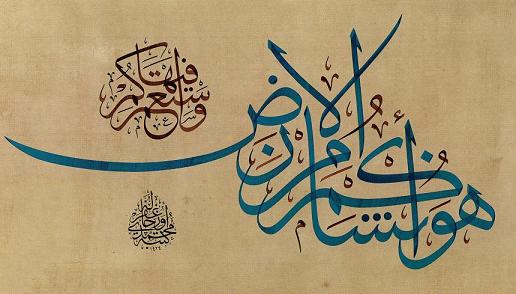 هو أنشأكم من الأرض
واستعمركم فيها